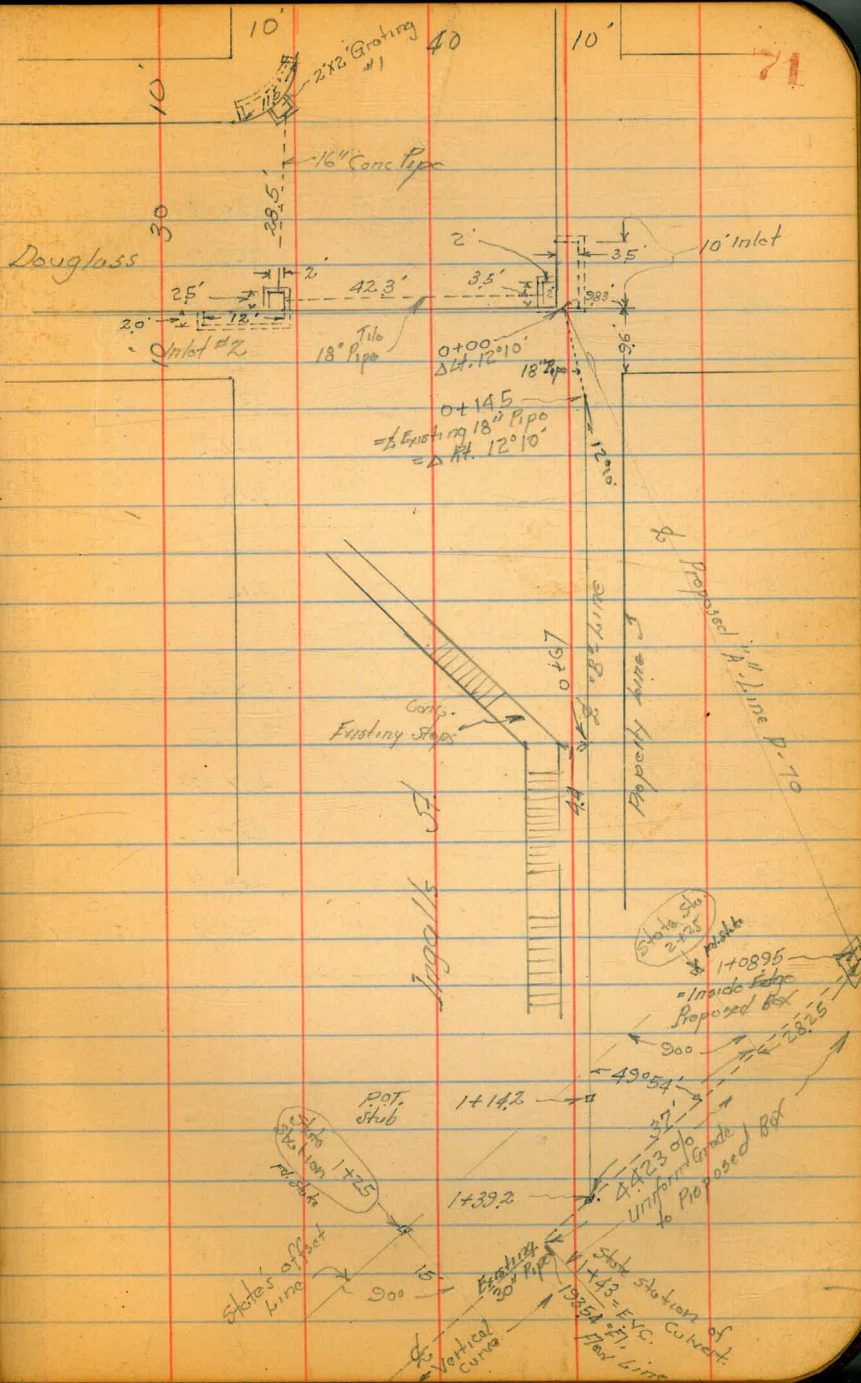 10'
40
10'
71
2'X2' Grating
#1
11.5'
10'
16" Conc. Pipe
28.5'
30
Douglass
2'
2'
3.5'
10' Inlet
2.5'
42.3'
3.5'
9.83'
2.0'
12'
Inlet #2
10
Tile
18" Pipe
0+00
Δ Lt. 12°10'
18" Pipe
9.6'
0+14.5
=℄ Existing 18" Pipe
=Δ Rt. 12°10'
12°10'
℄ Proposed "A" Line P-70
℄ "B" Line
0+67
Property Line
Conc.
Existing Steps
4.4
Ingalls St.
State Sta.
2+25
1+08.95
=Inside Edge
Proposed Box
28.25
90°
49°54'
P.O.T.
Stub
1+14.2
37'
4.423%
Uniform Grade
to Proposed Box
State
Station
1+25
1+39.2
State's offset
Line
90°
15'
Existing
30" Pipe
State Station of
1+43 = E.V.C. Culvert.
193.54 = El.
Flow Line
℄
= Vertical
Curve